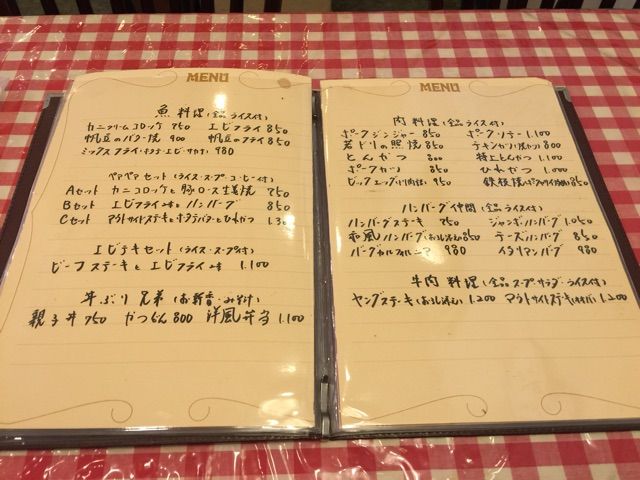 MENU
魚料理(全品ライス付)
カニクリームコロッケ 750 エビフライ 850
帆立のバター焼 900 帆立のフライ 850
ミックスフライ・ホタテ・エビ・サカナ 980
ペアペアセット(ライス・スープ・コーヒー付)
Aセット カニコロッケと豚ロース生姜焼 750
Bセット エビフライ ハンバーグ 850
Cセット アウトサイドステーキとホタテバターとひれかつ
エビテキセット(ライス・スープ付)
ビーフステーキとエビフライ 1.100
牛ぶり兄弟(お新香・みそ汁)
親子丼 750 かつどん 800 洋風弁当 1.100
MENU
肉料理(全品ライス付)
ポークジンジャー 850 ポークソテー 1.100
若どりの照焼 850 チキンカツ 800
とんかつ 800 特上とんかつ 1.100
ポークカツ 850 ひれかつ 1.000
ビッグエッグ 950 鉄板焼 850
ハンバーグ仲間(全品ライス付)
ハンバーグステーキ 750 ジャンボハンバーグ 1.050
和風ハンバーグ(おろし添え) 850 チーズハンバーグ 850
バーグカルフォルニア 980 イタリアンバーグ 980
牛肉料理(全品スープサラダ・ライス付)
ヤングステーキ(おろし添え) 1.200 アウトサイドステーキ 1.200